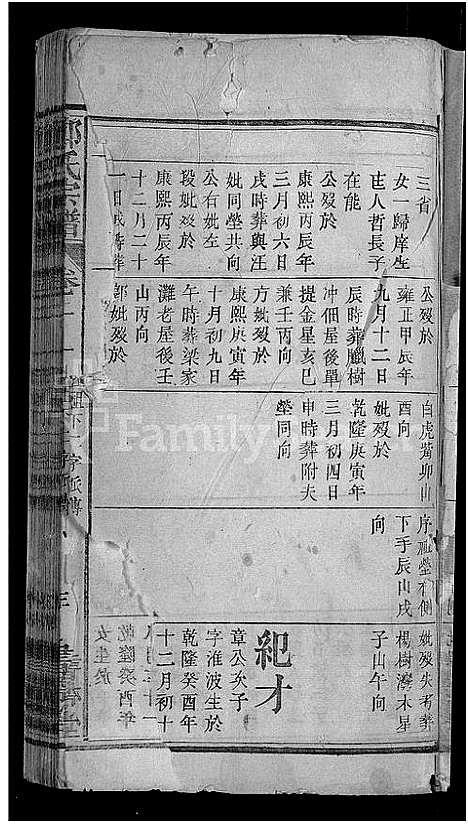 三省
女一歸庠生
世人哲長子
在能
公歿於
康熙丙辰年
三月初六日
戌時葬與汪
妣同塋共向
公右妣左
段妣歿於
康熙丙辰年
十二月二十
公歿於
雍正甲辰年
九月十二日
辰時葬臘樹
冲佃屋後單
提金星亥巳
兼壬丙向
方妣歿於
康熙庚寅年
十月初九日
午時葬梁家
灘老屋後壬
山丙向
鄧妣歿於
白虎嘴卯山
酉向
妣歿於
乾隆庚寅年
三月初四日
申時葬附夫
塋同向
序祖塋右側
下手辰山戌
向
妣歿失考葬
楊樹灣木星
子山午向
紀才
章公次子
字淮波生於
乾隆癸酉年
十二月初十
氏宗譜
卷
FamilySearch